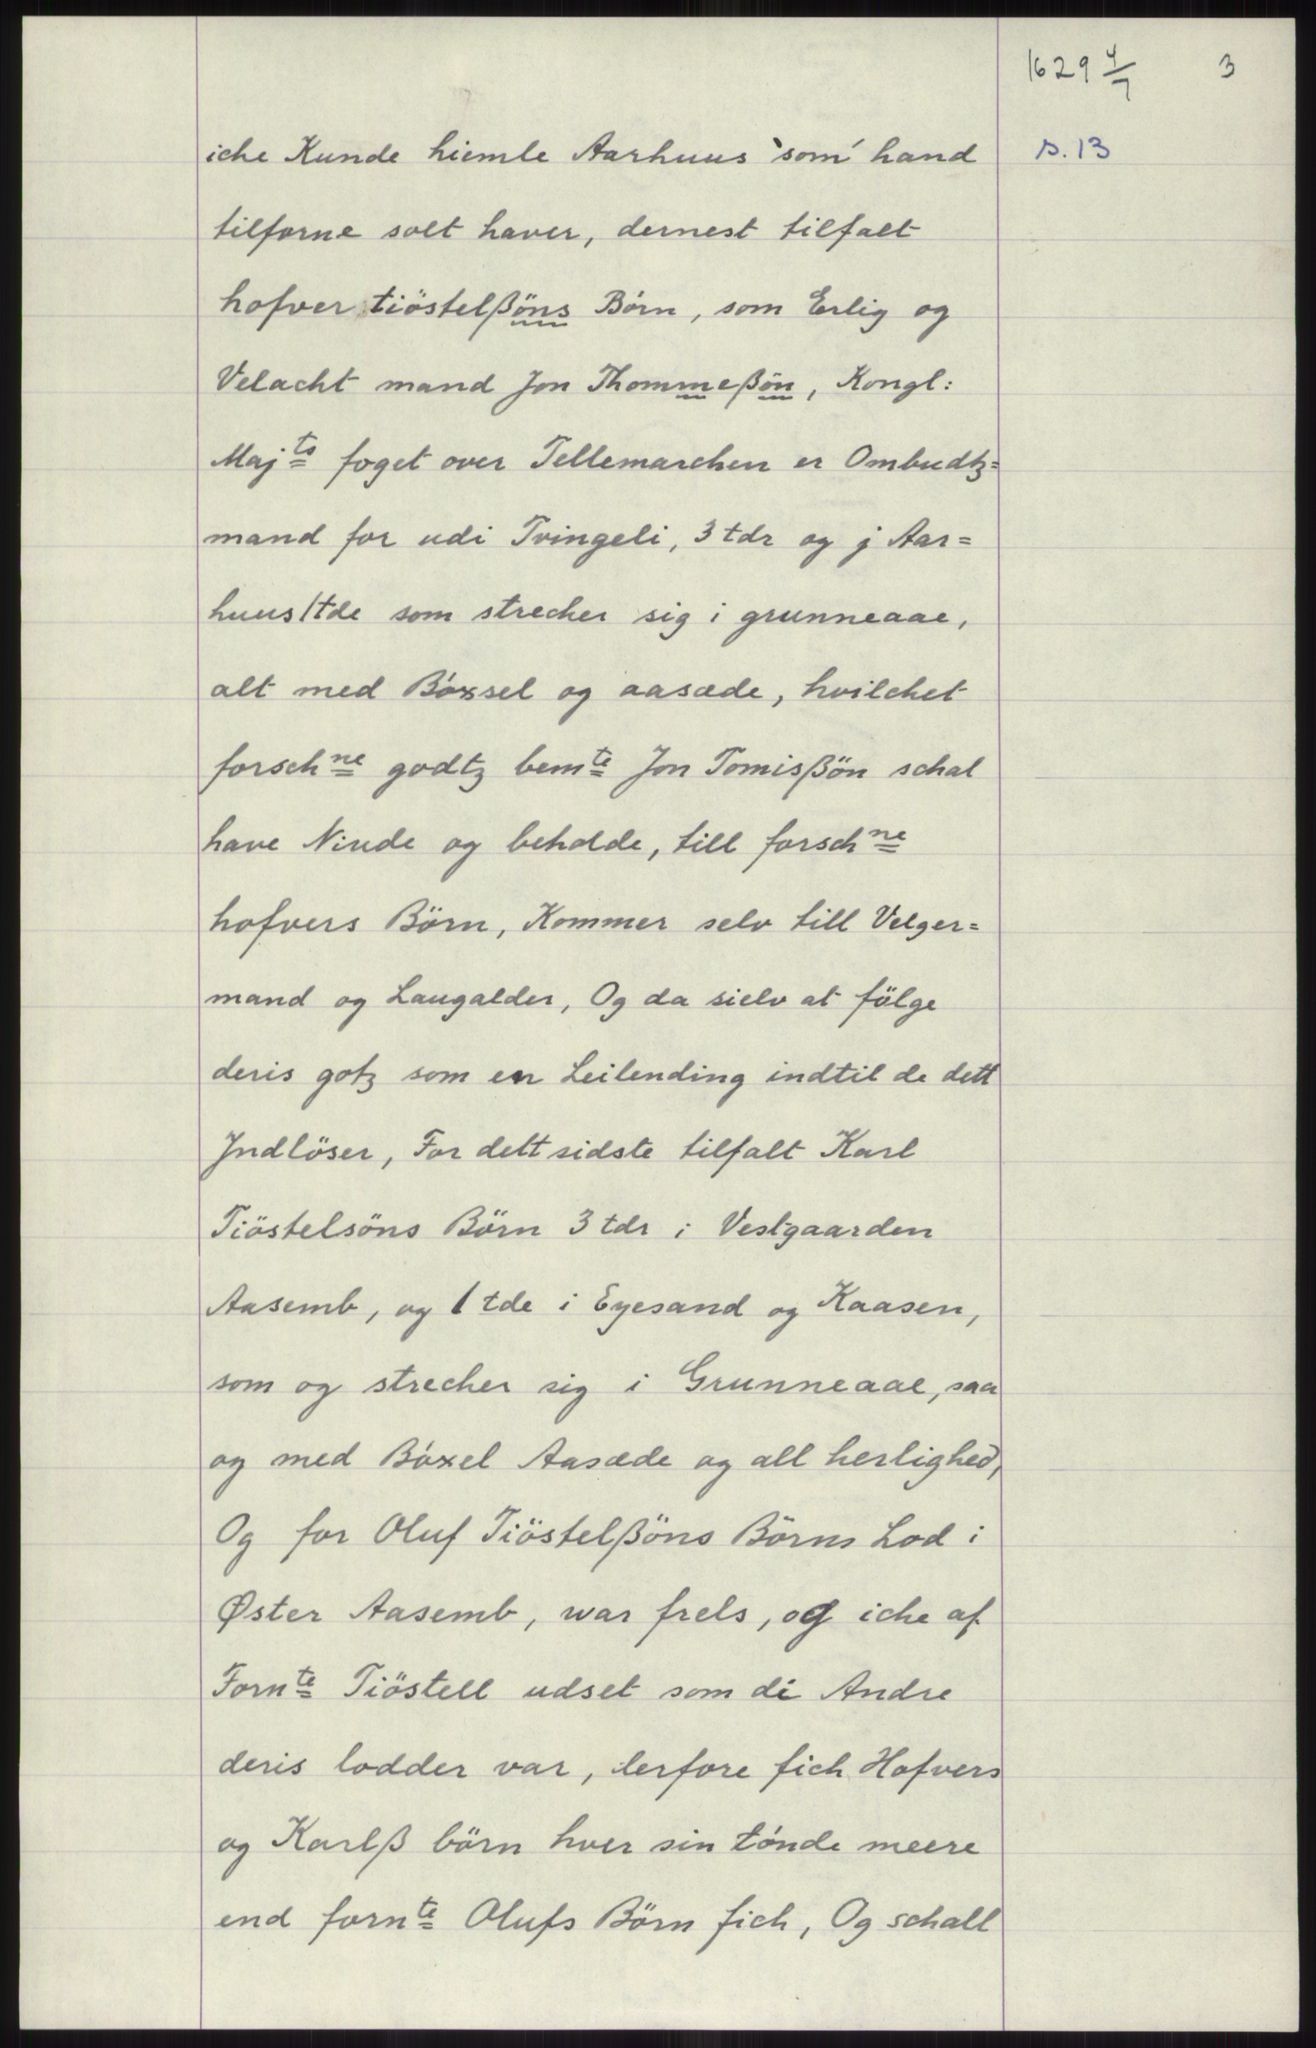 1629 4/7 3
iche Kunde hiemle Aarhuus `som´ hand
s. 13
tilforne solt haver, dernest tilfalt
hofver tiöstelßöns Börn, som Erlig og
Velacht mand Jon Thommeßön, Kongl:
Majts foget over Tellemarchen er Ombudtz=
mand for udi Tvingeli, 3 tdr og j Aar=
huus 1 tde som strecher sig i grunneaae,
alt med Böxsel og aasæde, hvilchet
forschne godtz bemte Jon Tomisßön schal
have Niude og beholde, till forschne
hofvers Börn, Kommer selv till Velger=
mand og Laugalder, Og da sielv at fölge
deris gotz som en Leilending indtil de dett
Jndlöser, For dett sidste tilfalt Karl
Tiöstelsöns Börn 3 tdr i Vestgaarden
Aasemb, og 1 tde i Eyesand og Kaasen,
som og strecher sig i Grunneaae, saa
og med Böxel Aasæde og all herlighed,
Og for Oluf Tiöstelßöns Börns Lod i
Øster Aasemb, war frels, og iche af
Fornte Tiöstell udset som di Andre
deris lodder var, derfore fich Hofvers
og Karlß börn hver sin tönde meere
end fornte Olufs Börn fich, Og schall